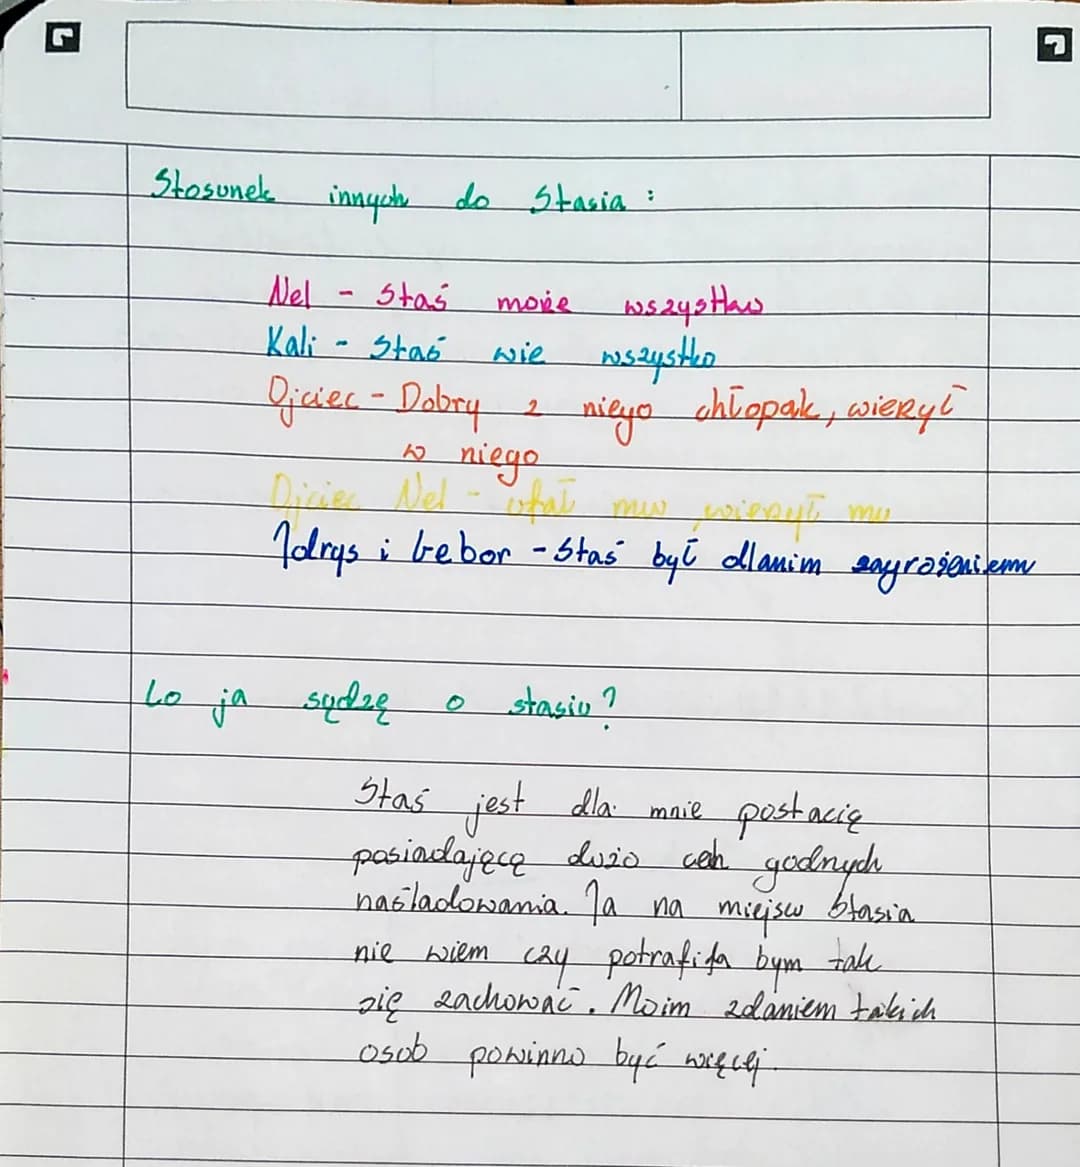 Stosunek innych do Stasia :
Nel - Staś może wszystko
Kali - Staś wie wszystko
Ojciec - Dobry z niego chłopak, wierył
w niego
Ojciec Nel - ufał mu, wierzył mu
Idrys i Gebor - Staś był dlanim zagrożeniem
Co ja sądzę o stasiu?
Staś jest dla mnie postacię
posiadajęcę dużo ceh godnych
naśladowania. Ja na miejscu Stasia
nie wiem czy potrafiła bym tak
się zachować. Moim zdaniem takich
osob powinno być więcej.